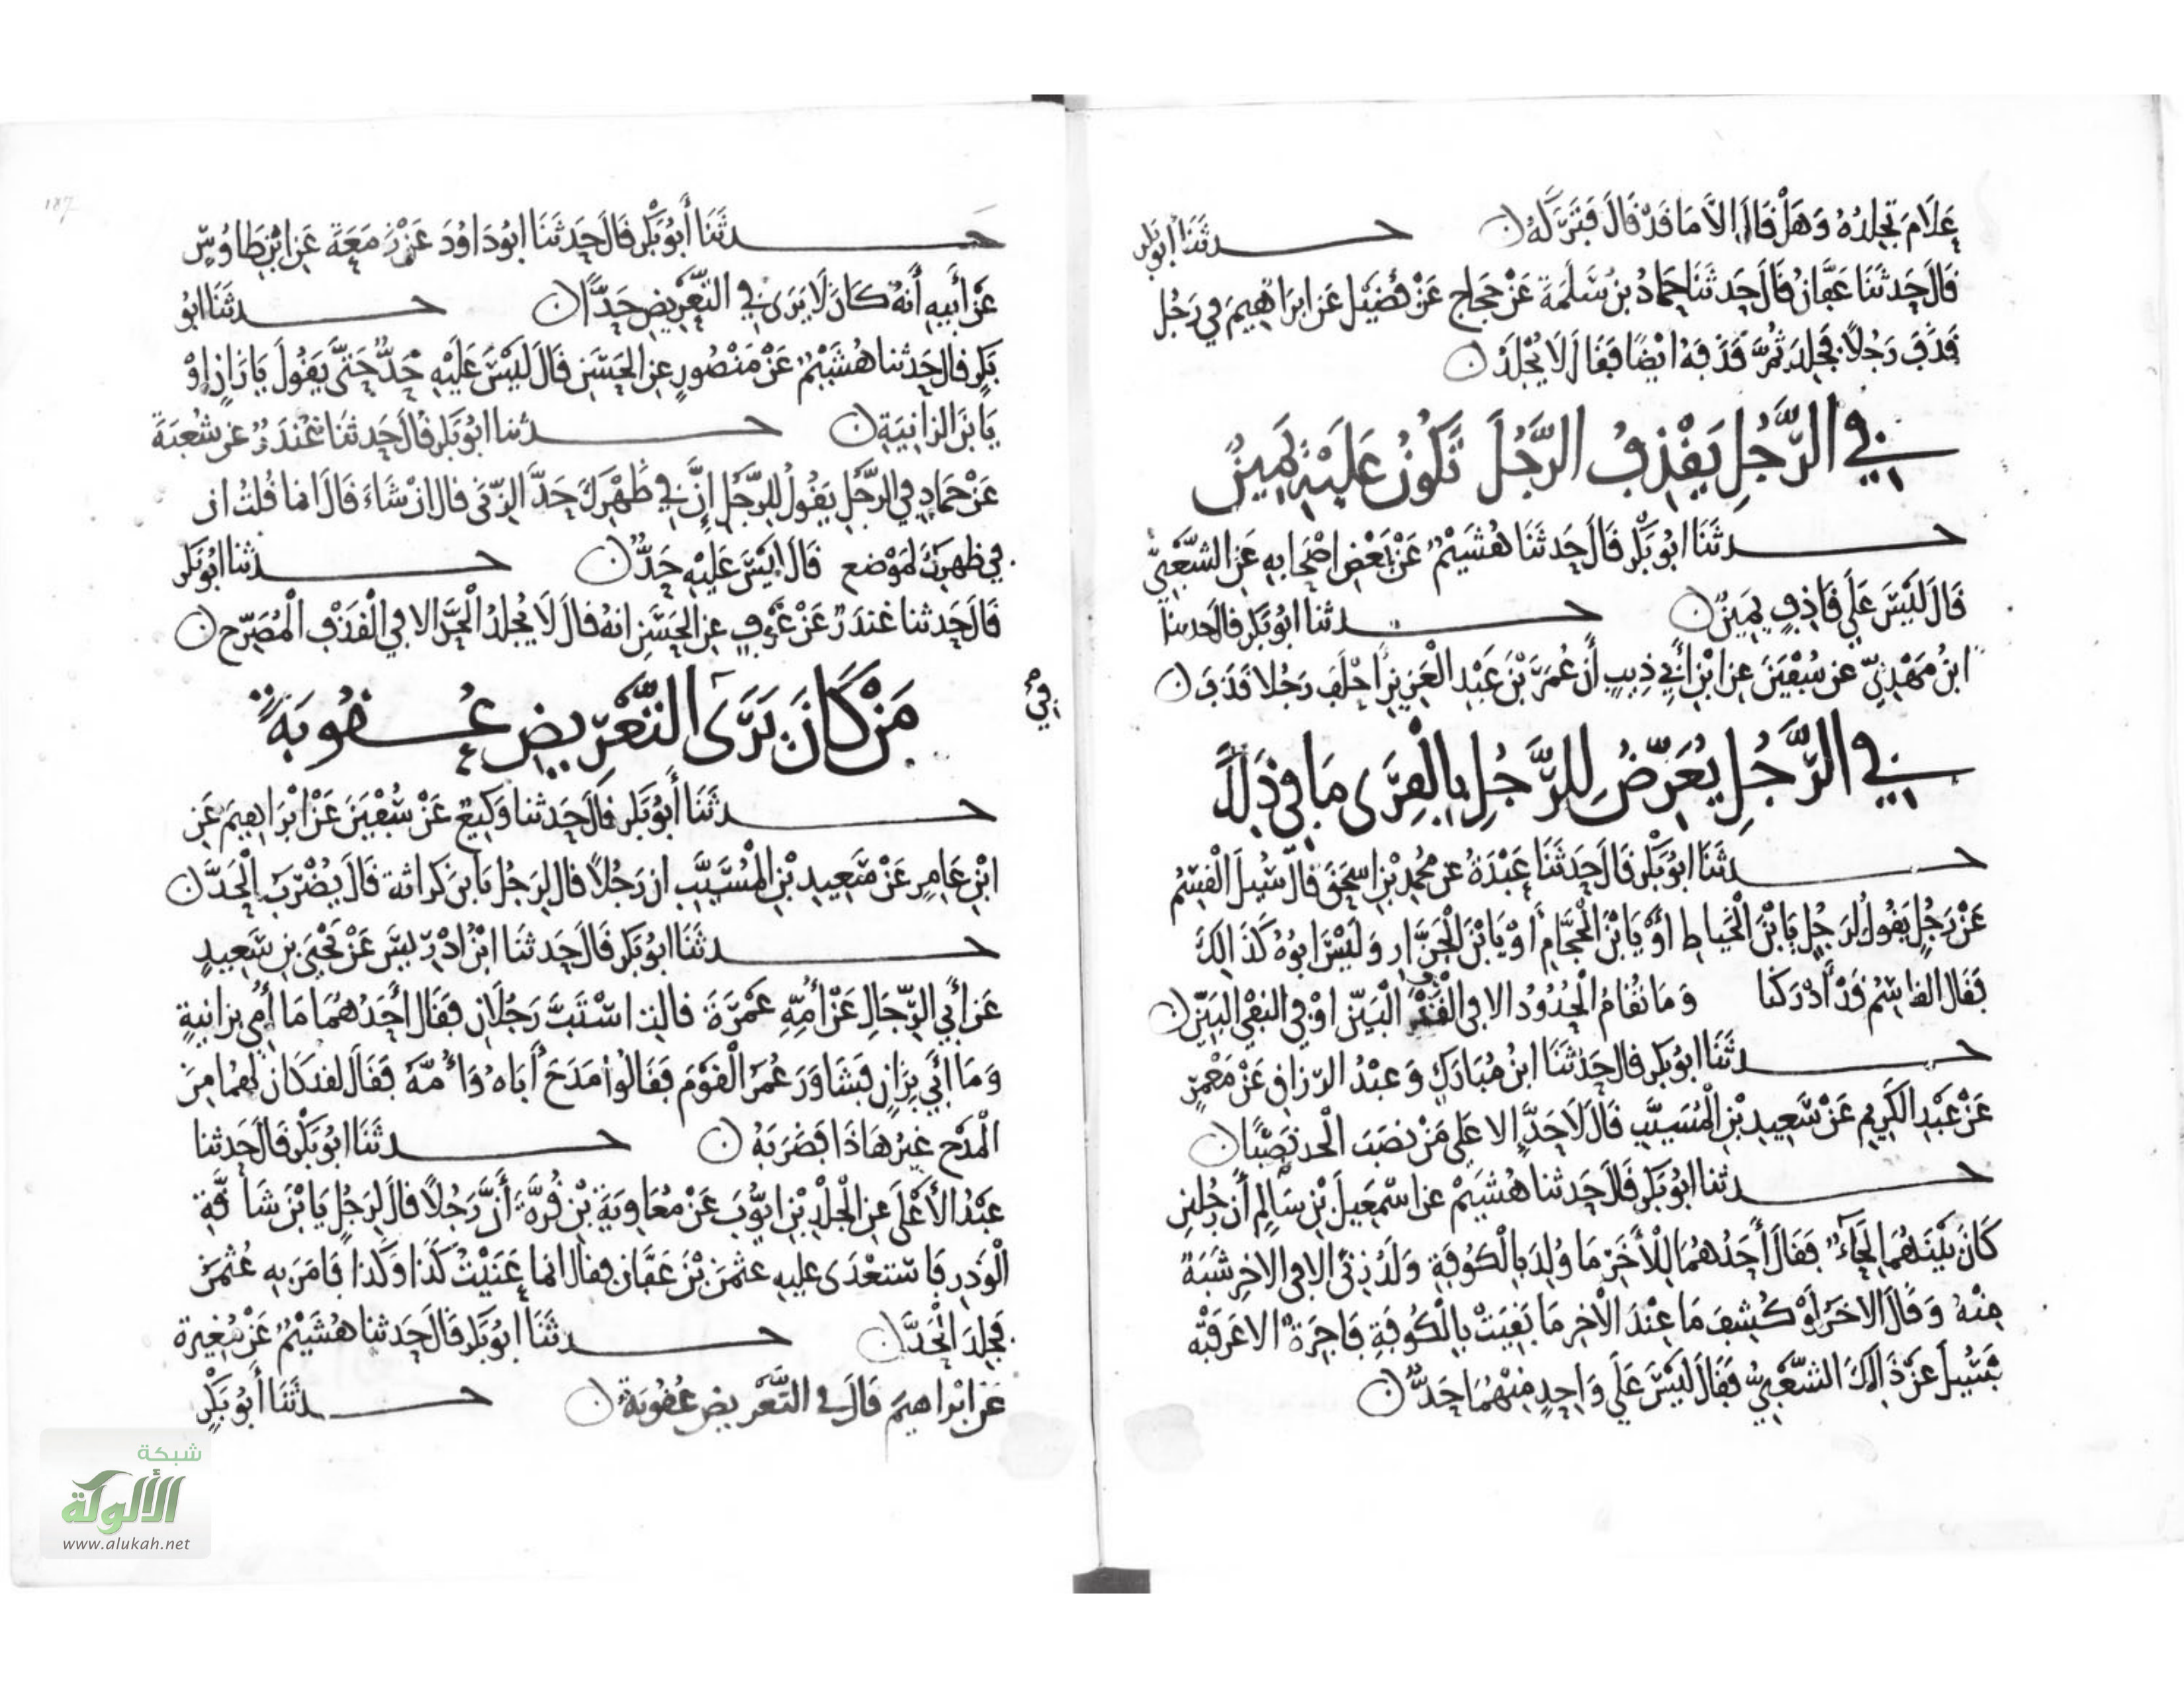 عَلَامَ تَجْلِدُهُ وَهَلْ قَالَ إِلَّا مَا قَدْ قَالَ فَتَرَكَهُ حدثنا أبو بكر
قَالَ حَدثنَا عَفَّانُ قَالَ حَدثنَا حَمادُ بنُ سَلَمَةَ عَنْ حَجاج عَنْ فُضَيْل عَن ابرَاهِيمَ فِي رَجُل
قَذَفَ رَجُلًا فَجُلِدَ ثُمَّ قَذَفَهُ ايْضًا فَقَالَ لَا يُجْلَدُ
في الرَّجُلِ يَقْذِفُ الرَّجُلَ تَكُونُ عَلَيْهِ يَمِينٌ
حدثَنَا ابُو بَكْر قَالَ حَدثنَا هُشَيْمٌ عَنْ بَعْضِ اصْحَابِهِ عَن الشَّعْبِيِّ
قَالَ لَيْسَ عَلَى قَاذِفٍ يَمِينٌ حدثنا ابُو بَكر قال حدثنا
ابنُ مَهْدِيّ عن سُفْيَنَ عن ابْنِ أَبِي ذِيبٍ أَن عُمَرَ بْنَ عَبْدِ الْعَزِيزِ احْلَفَ رَجُلا قَذَفَ
في الرَّجُلِ يُعَرِّضُ لِلرَّجُلِ بِالْفِرَى مَا فِي ذَلِكَ
حدثَنَا ابُو بَكْر قَالَ حَدثنَا عَبْدَةُ عن مُحمدِ بْنِ اسحَقَ قال سُئِلَ الْقَسِمُ
عَنْ رَجُلٍ يَقُولُ لرَجُلٍ يَا بْنَ الْخَياطِ أَوْ يَا بْنَ الْحَجَّامِ أَوْ يَا بْنَ الْجَزَّارِ وَلَيْسَ ابُوهُ كَذَالِكَ
فَقَال القَاسِمُ قَدْ أَدْرَكنا وَمَا تقَامُ الْحُدُودُ الا في الْقَذْفِ الْبَيّن اوْ في النفْيِ البَيّن
حدثَنَا ابُو بَكر قال حَدثنَا ابنُ مُبَارَكٍ وَعبْدُ الرّزاقِ عَنْ مَعْمَرٍ
عَنْ عَبْدِ الكَرِيمِ عَنْ سَعِيدِ بْنِ الْمُسَيَّبِ قَالَ لَا حَدَّ الا عَلَى مَنْ نصَبَ الْحد نصْبًا
حدثنا ابُو بَكر قَالَ حَدثنا هُشَيمٌ عن اسْمَعِيلَ بْنِ سَالِمٍ أَن رجُلين
كَانَ بَيْنَهُمَا لِحَاءٌ فَقَالَ أَحَدُهُمَا لِلْأَخَرِ مَا وُلِدَ بِالْكُوفَةِ وَلَدُ زِنًى الا في الاخر شَبَهٌ
مِنْهُ وَقَالَ الاخَرُ لَوْ كُشِفَ مَا عِنْدَ الْاخر مَا بَقِيَتْ بِالْكُوفَةِ فَاجِرَةٌ الا عَرَفَتْهُ
فَسُئِلَ عَنْ ذَالِكَ الشَّعْبِيُّ فَقَالَ لَيْسَ عَلَى وَاحِدٍ مِنْهُمَا حَدٌّ
187
حدثَنَا أَبُو بَكْر قَالَ حَدثنَا ابُو دَاوُدَ عَنْ زَمَعَةَ عَن ابْنِ طَاوُسٍ
عَنْ أَبِيهِ أَنهُ كَانَ لَا يَرَى فِي التَّعْرِيضِ حَدًّا حدثَنَا ابُو
بَكر قال حَدثنا هُشَيْمٌ عَنْ مَنْصُورٍ عن الحَسَنِ قَالَ لَيْسَ عَلَيْهِ حَدٌّ حَتَّى يَقُولَ يَا زَانِ اوْ
يَا بْنَ الزانِيَةِ حدثنا ابُو بَكر قَالَ حَدثنا غُنْدَرٌ عن شُعْبَةَ
عَنْ حَمادٍ فِي الرَّجُلِ يَقُولُ لِلرَّجُلِ إِنَّ فِي ظَهْرِكَ حَدَّ الزّنَى قال ان شَاءَ قَالَ انما قُلتُ ان
في ظهرِكَ لمَوْضع قَالَ لَيْسَ عَلَيْهِ حَدٌّ حدثنا ابُو بَكر
قَالَ حَدثنا غندَرٌ عَنْ عَوْفٍ عن الحَسَنِ انهُ قالَ لَا يُجلدُ الْحَدَّ الا فِي الْقَذْفِ الْمُصَرَّحِ
فِي
مَنْ كَانَ يَرَى التَّعْرِيضِ عُقُوبَةً
حدثَنَا أَبُو بَكر قَالَ حَدثنا وَكِيعٌ عَنْ سُفْيَنَ عَنْ ابْرَاهِيمَ عَنِ
ابْنِ عَامِرٍ عَنْ سَعِيدِ بْنِ الْمُسَيَّبِ ان رَجُلًا قال لِرَجُل يَا بن كراثة قَالَ يُضْرَبُ الْحَدَّ
حدثَنَا ابُو بَكر قَالَ حَدثنَا ابْنُ ادْرِيسَ عَنْ يَحْيَى بنِ سَعِيدٍ
عَن أَبِي الرِّجَالِ عَنْ أُمِّهِ عَمْرَةَ قالت اسْتَبَّ رَجُلَانِ فَقَالَ أَحَدُهُمَا مَا أُمِّي بزانيةٍ
وَمَا أَبِي بِزَانٍ فَشَاوَرَ عُمَرُ الْقَوْمَ فَقَالُوا مَدَحَ أَبَاهُ وَأُمَّهُ فَقَالَ لقد كَانَ لَهُمَا مِنَ
الْمَدْحِ غيْرُ هَاذَا فَضَرَبَهُ حدثَنَا ابُو بَكْر قَالَ حَدثنا
عَبْدُ الأَعْلَى عن الْجَلْدِ بْنِ ايُّوبَ عَنْ مُعَاوِيَةَ بْنِ قُرَّةَ أَنَّ رَجُلًا قالَ لِرَجُلٍ يَا بْنَ شَامَّةِ
الْوَذَرِ فَاسْتَعْدَى عليهِ عثمَنَ بْنَ عَفَّانَ فقالَ انما عَنَيْتُ كَذَا وَكَذَا فَامَرَ بِهِ عُثمَنُ
فَجُلِدَ الْحَدَّ حدثَنَا ابُو بَكْر قَالَ حَدثنا هُشَيْمٌ عَنْ مُغِيرة
عَنْ ابْرَاهيمَ قَالَ في التَّعْريضِ عُقُوبَةٌ حدثَنَا أَبُو بَكْرٍ
شبكة
الألوكة
www.alukah.net